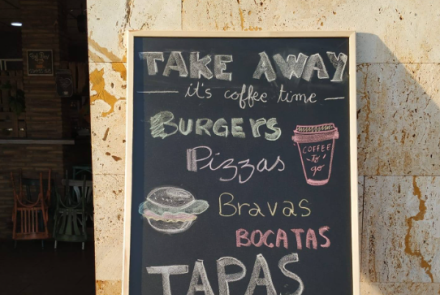 TAKE AWAY
it's coffee time
BURGERS
Pizzas
COFFEE
to
go
Bravas
BOCATAS
TAPAS